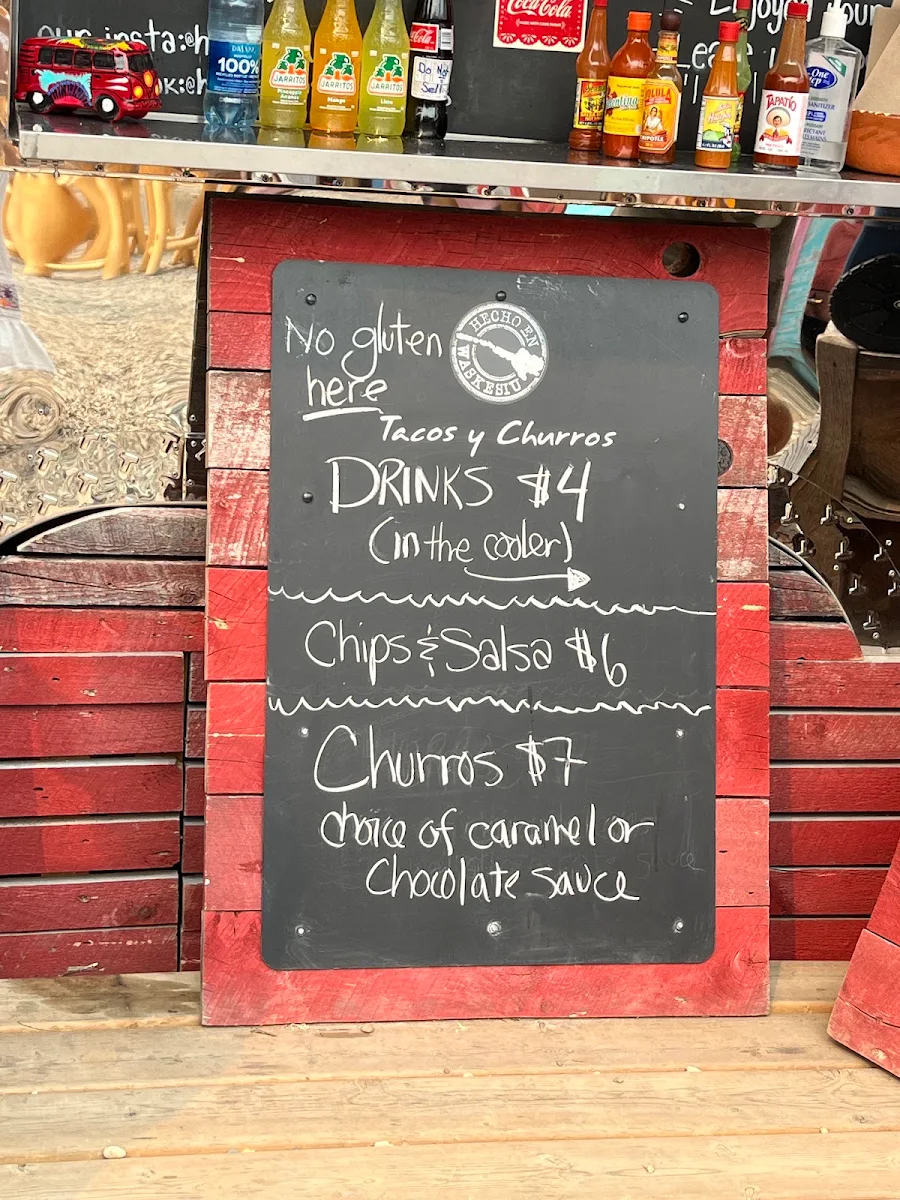 our insta:@h
ok:@h
100%
JARRITOS
JARRITOS
JARRITOS
Coca-Cola
Do Not
Sell
Coca-Cola
Enjoyed your
TAPATÍO
One
Step
SANITIZER
No gluten
here
HECHO EN
WASKESIU
Tacos y Churros
DRINKS $4
(in the cooler)
Chips & Salsa $6
Churros $7
choice of caramel or
chocolate sauce